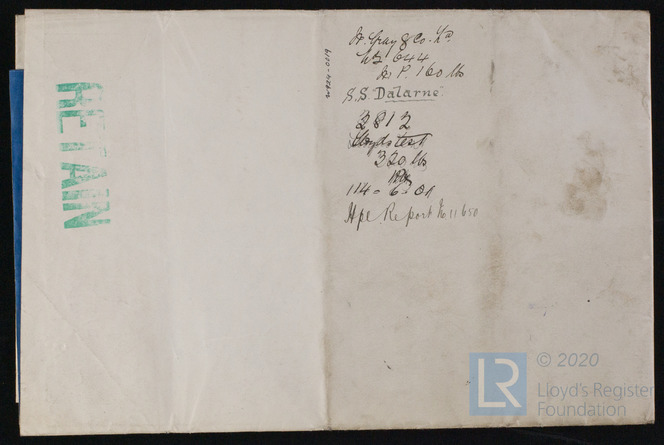 RETAIN
W924-0019
W. Gray & Co. Ld
No 644
W. P. 160 lbs
S.S. Dalarne
2812
Lloyds test
320 lbs
114 = 6 = 01
Hpl Report No 11650
LR
© 2020
Lloyd's Register
Foundation